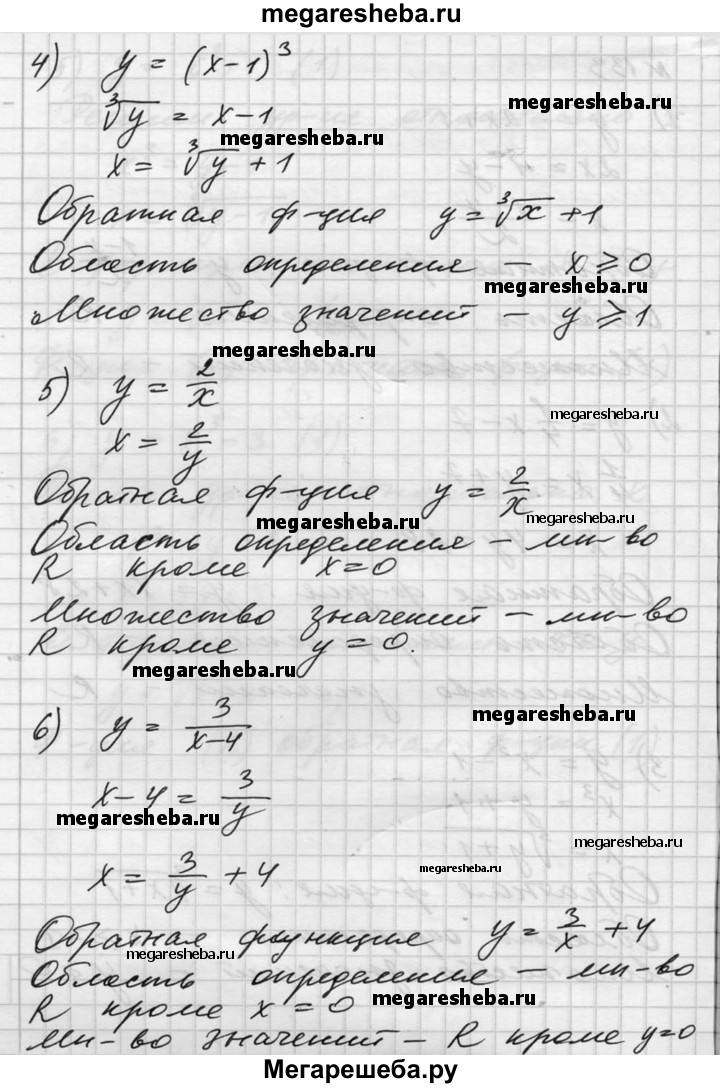 megaresheba.ru
4) y = (x-1)³
∛y = x-1
megaresheba.ru
megaresheba.ru
x = ∛y + 1
Обратная ф-ция y = ∛x + 1
Область определения – x ⩾ 0
megaresheba.ru
Множество значений – y ⩾ 1
megaresheba.ru
5) y = 2/x
megaresheba.ru
x = 2/y
Обратная ф-ция y = 2/x
megaresheba.ru
megaresheba.ru
Область определения – мн-во
R кроме x = 0
Множество значений – мн-во
R кроме y = 0.
megaresheba.ru
megaresheba.ru
6) y = 3/(x-4)
x-4 = 3/y
megaresheba.ru
megaresheba.ru
x = 3/y + 4
megaresheba.ru
Обратная функция y = 3/x + 4
megaresheba.ru
Область определение – мн-во
R кроме x = 0
megaresheba.ru
Мн-во значений – R кроме y=0
Мегарешеба.ру